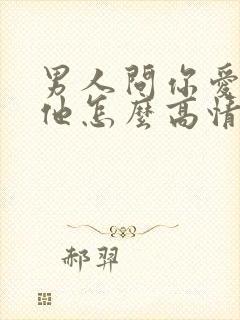 男人問你愛
他怎麼高情
郝羿